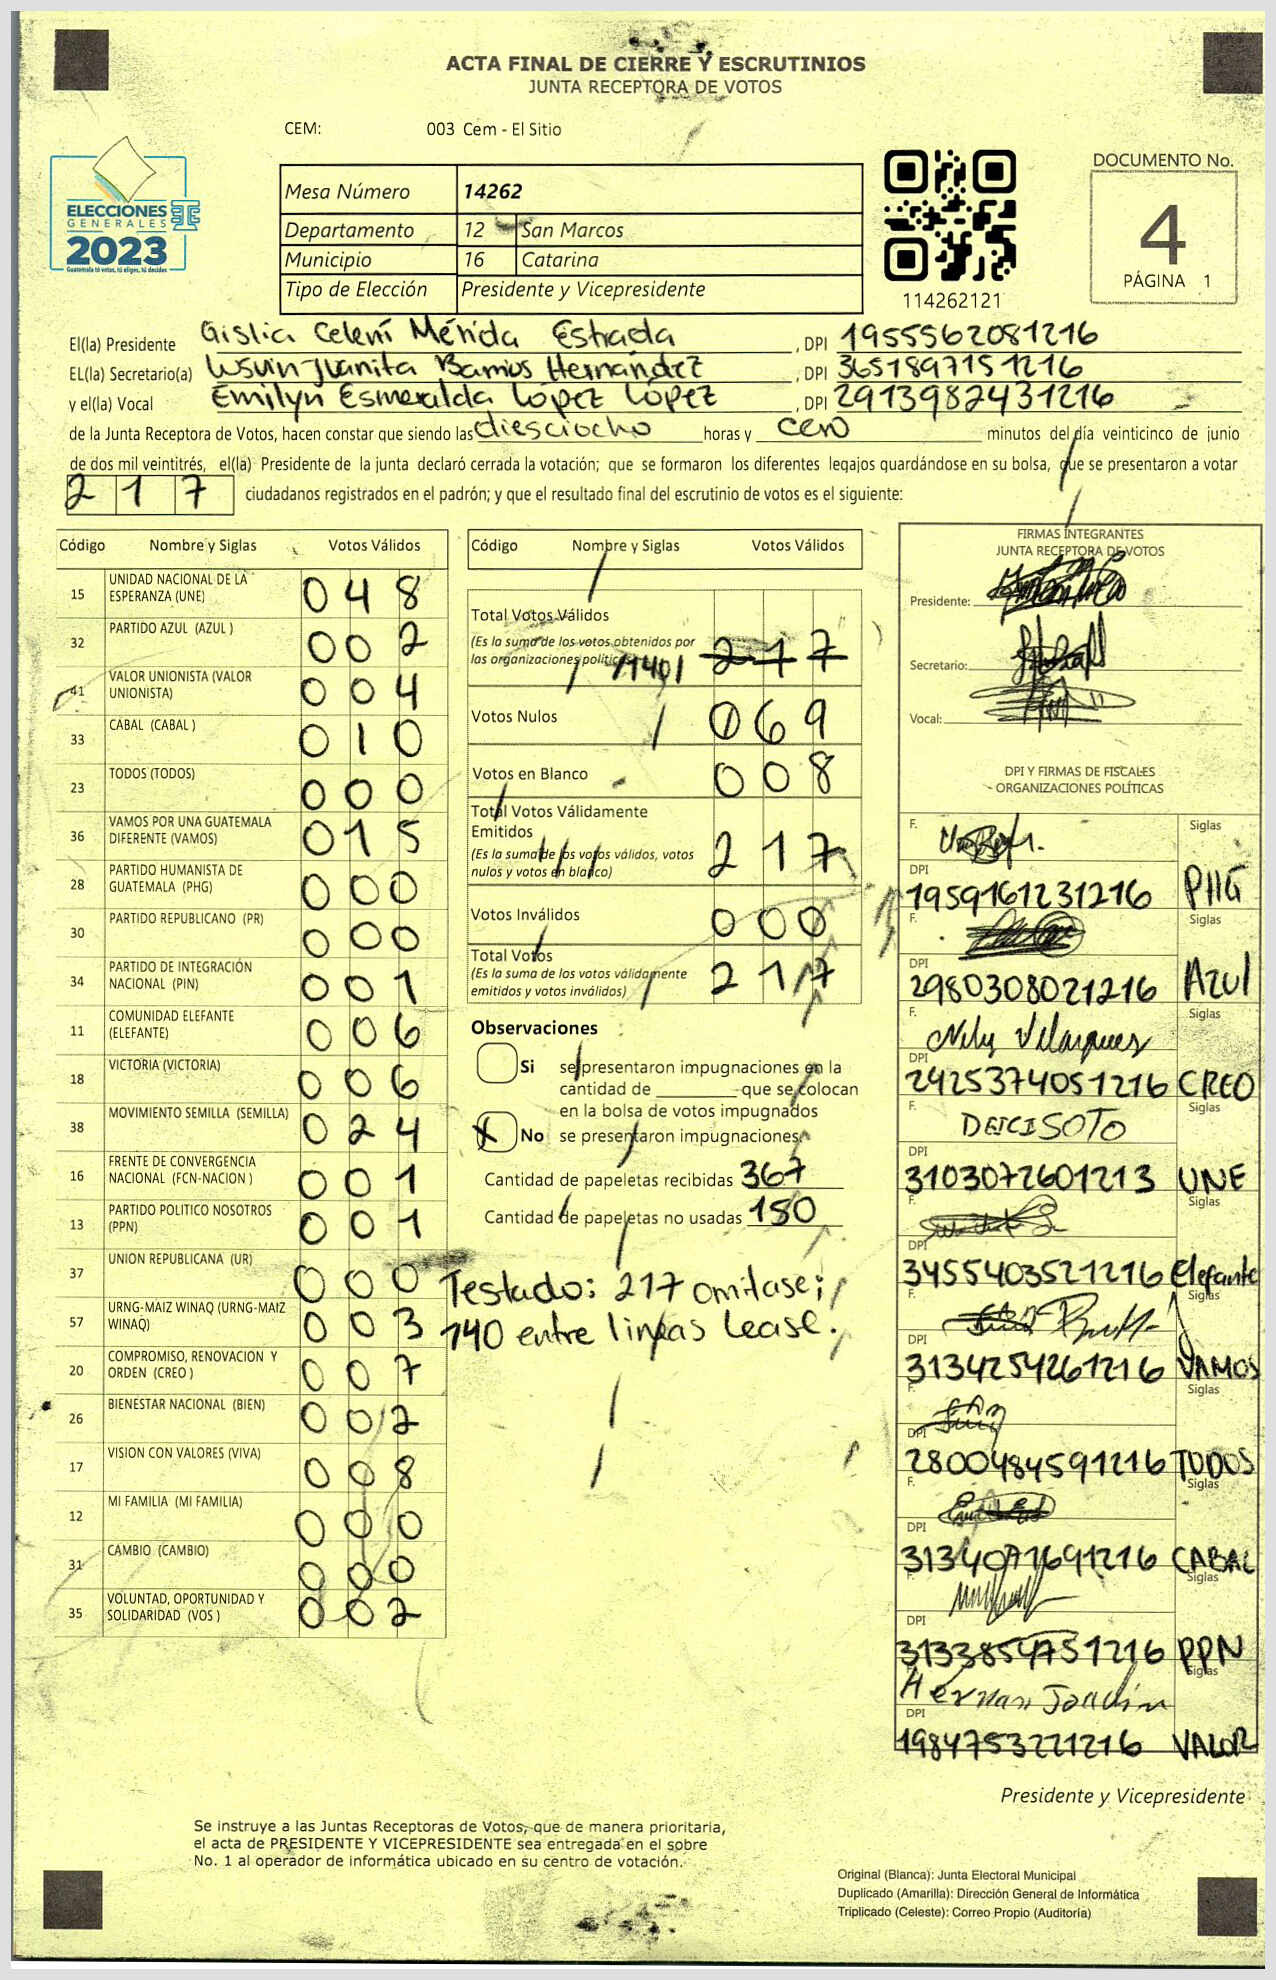 ACTA FINAL DE CIERRE Y ESCRUTINIOS
JUNTA RECEPTORA DE VOTOS
CEM: 003 Cem - El Sitio
ELECCIONES
GENERALES
2023
Guatemala tú votas, tú eliges, tú decides
Mesa Número 14262
Departamento 12 San Marcos
Municipio 16 Catarina
Tipo de Elección Presidente y Vicepresidente
114262121
DOCUMENTO No.
4
PÁGINA 1
El(la) Presidente Gislia Celení Mérida Estrada, DPI 1955562081216
EL(la) Secretario(a) Juanita Barrios Hernández, DPI 3651897151216
y el(la) Vocal Emilyn Esmeralda López López, DPI 2913982431216
de la Junta Receptora de Votos, hacen constar que siendo las diesciocho horas y cero minutos del día veinticinco de junio
de dos mil veintitrés, el(la) Presidente de la junta declaró cerrada la votación; que se formaron los diferentes legajos guardándose en su bolsa, que se presentaron a votar
217 ciudadanos registrados en el padrón; y que el resultado final del escrutinio de votos es el siguiente:
Código Nombre y Siglas Votos Válidos
15 UNIDAD NACIONAL DE LA ESPERANZA (UNE) 048
32 PARTIDO AZUL (AZUL ) 002
41 VALOR UNIONISTA (VALOR UNIONISTA) 004
33 CABAL (CABAL ) 010
23 TODOS (TODOS) 000
36 VAMOS POR UNA GUATEMALA DIFERENTE (VAMOS) 015
28 PARTIDO HUMANISTA DE GUATEMALA (PHG) 000
30 PARTIDO REPUBLICANO (PR) 000
34 PARTIDO DE INTEGRACIÓN NACIONAL (PIN) 001
11 COMUNIDAD ELEFANTE (ELEFANTE) 006
18 VICTORIA (VICTORIA) 006
38 MOVIMIENTO SEMILLA (SEMILLA) 024
16 FRENTE DE CONVERGENCIA NACIONAL (FCN-NACION ) 001
13 PARTIDO POLITICO NOSOTROS (PPN) 001
37 UNION REPUBLICANA (UR) 000
57 URNG-MAIZ WINAQ (URNG-MAIZ WINAQ) 003
20 COMPROMISO, RENOVACION Y ORDEN (CREO ) 007
26 BIENESTAR NACIONAL (BIEN) 002
17 VISION CON VALORES (VIVA) 008
12 MI FAMILIA (MI FAMILIA) 000
31 CAMBIO (CAMBIO) 000
35 VOLUNTAD, OPORTUNIDAD Y SOLIDARIDAD (VOS ) 002
Código Nombre y Siglas Votos Válidos
Total Votos Válidos
(Es la suma de los votos obtenidos por
las organizaciones políticas) 140 217
Votos Nulos 069
Votos en Blanco 008
Total Votos Válidamente
Emitidos
(Es la suma de los votos válidos, votos
nulos y votos en blanco) 217
Votos Inválidos 000
Total Votos
(Es la suma de los votos válidamente
emitidos y votos inválidos) 217
Observaciones
Si se presentaron impugnaciones en la
cantidad de ________ que se colocan
en la bolsa de votos impugnados
X No se presentaron impugnaciones
Cantidad de papeletas recibidas 367
Cantidad de papeletas no usadas 150
Testado: 217 omitase;
140 entre lineas Lease.
FIRMAS INTEGRANTES
JUNTA RECEPTORA DE VOTOS
Presidente:
Secretario:
Vocal:
DPI Y FIRMAS DE FISCALES
ORGANIZACIONES POLÍTICAS
F. Siglas
DPI 1959161231216 PHG
F. Siglas
DPI 2980308021216 AZUL
F. Nely Velasquez Siglas
DPI 2425374051216 CREO
F. DEICI SOTO Siglas
DPI 3103072601213 UNE
F. Siglas
DPI 3455403521216 Elefante
F. Siglas
DPI 3134254261216 VAMOS
F. Siglas
DPI 2800484591216 TODOS
F. Siglas
DPI 3134071691216 CABAL
F. Siglas
DPI 3133854751216 PPN
F. Hernan Joachin Siglas
DPI 1984753221216 VALOR
Presidente y Vicepresidente
Se instruye a las Juntas Receptoras de Votos, que de manera prioritaria,
el acta de PRESIDENTE Y VICEPRESIDENTE sea entregada en el sobre
No. 1 al operador de informática ubicado en su centro de votación.
Original (Blanca): Junta Electoral Municipal
Duplicado (Amarilla): Dirección General de Informática
Triplicado (Celeste): Correo Propio (Auditoría)